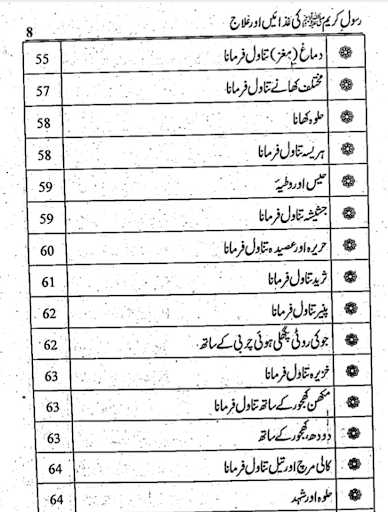 رسول کریم ﷺ کی غذائیں اور علاج
8
دماغ (مغز) تناول فرمانا 55
مختلف کھانے تناول فرمانا 57
حلوہ کھانا 58
ہریسہ تناول فرمانا 58
حیس اور وطیہ 59
جشیشہ تناول فرمانا 59
حریرہ اور عصیدہ تناول فرمانا 60
ثرید تناول فرمانا 61
پنیر تناول فرمانا 62
جو کی روٹی پگھلی ہوئی چربی کے ساتھ 62
خزیرہ تناول فرمانا 63
مکھن کھجور کے ساتھ تناول فرمانا 63
دودھ، کھجور کے ساتھ 63
کالی مرچ اور تیل تناول فرمانا 64
حلوہ اور شہد 64